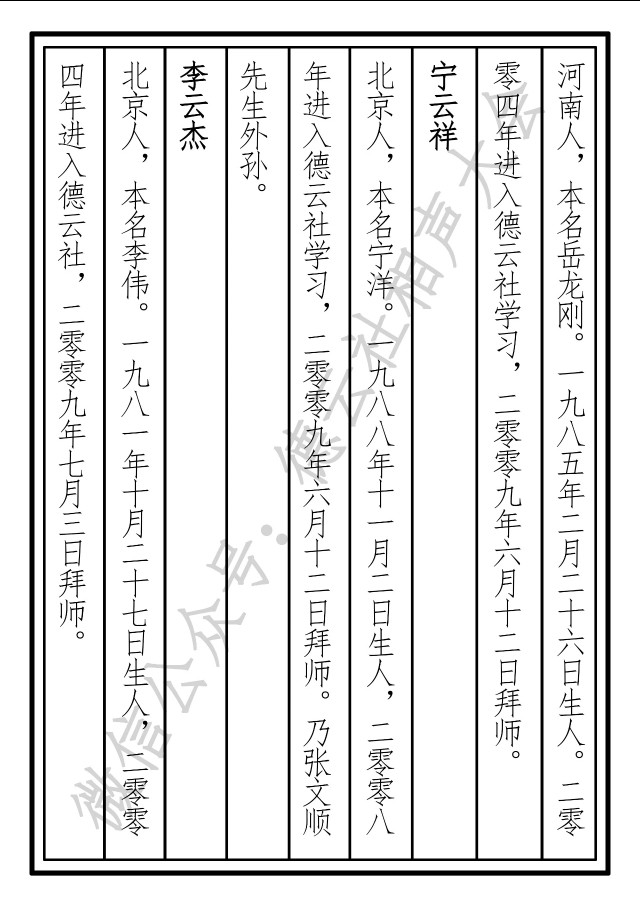 河南人，本名岳龙刚。一九八五年二月二十六日生人。二零
零四年进入德云社学习，二零零九年六月十二日拜师。
宁云祥
北京人，本名宁洋。一九八八年十一月二日生人，二零零八
年进入德云社学习，二零零九年六月十二日拜师。乃张文顺
先生外孙。
李云杰
北京人，本名李伟。一九八一年十月二十七日生人，二零零
四年进入德云社，二零零九年七月三日拜师。
微信公众号：德云社相声大会